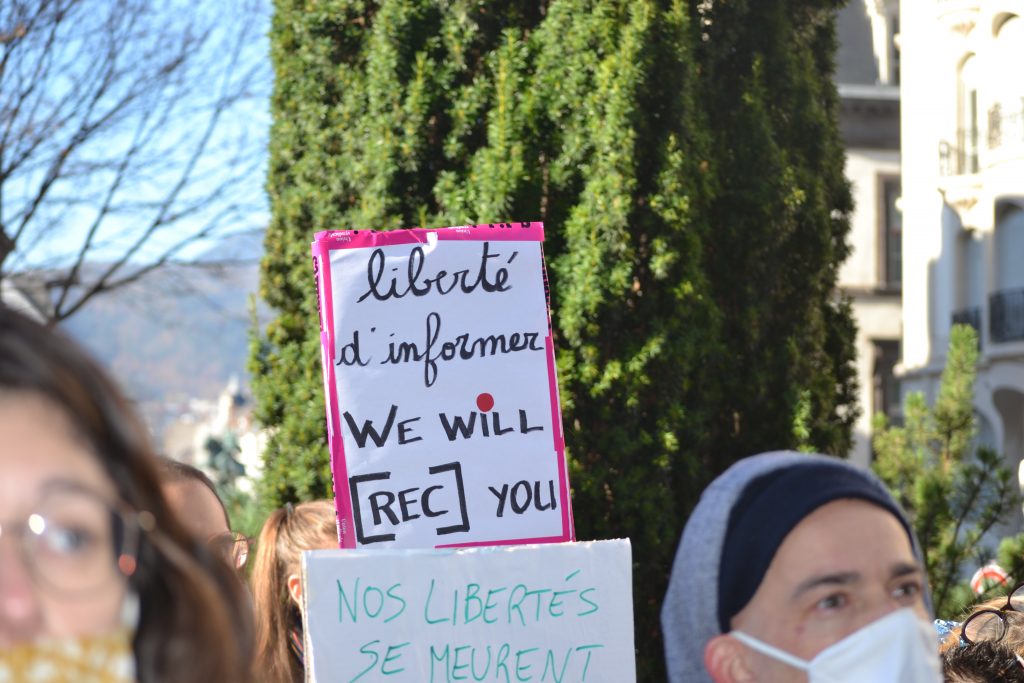 liberté
d'informer
WE WiLL
[REC] YOU
NOS LIBERTÉS
SE MEURENT